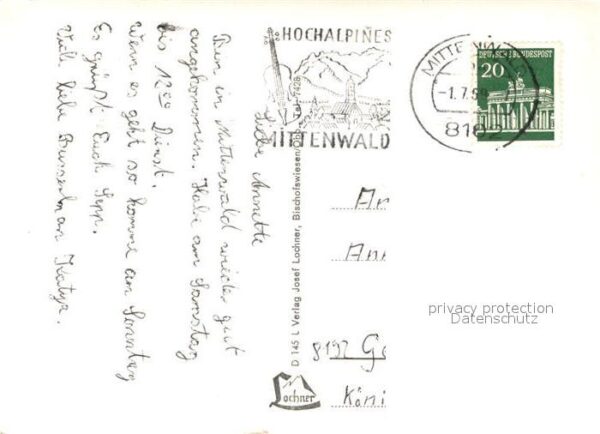 Liebe Annette
Bin in Mittenwald wieder gut
angekommen. Habe am Samstag
bis 12⁰⁰ Dienst.
Wenn es geht so komme am Sonntag
Es grüßt Euch Sepp.
Viele liebe Busserl an Katya.
HOCHALPINES
MITTENWALD
MITTENWALD
-1.7.69
8102
DEUTSCHE BUNDESPOST
20
D 145 L Verlag Josef Lochner, Bischofswiesen/Obb. Tel. 7428
Lochner
An
Ann
8192 Ge
Köni
privacy protection
Datenschutz